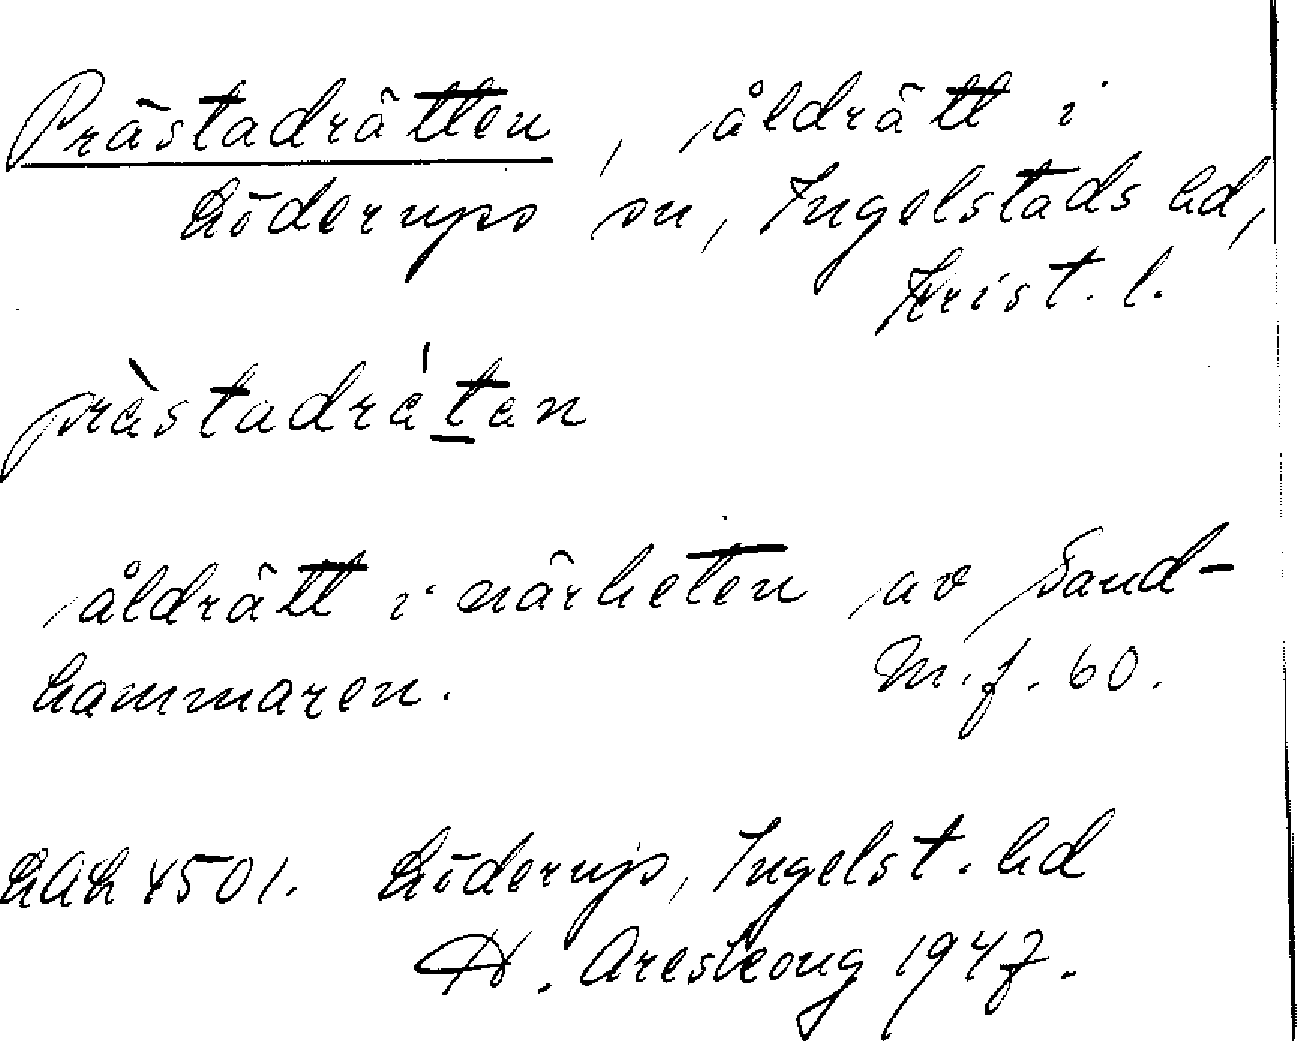 Prästadrätten, åldrätt i
Löderups sn, Ingelstads hd,
Krist. l.
pràstadrátan
åldrätt i närheten av Sand-
hammaren. M.f. 60.
LAL 4501. Löderup, Ingelst. hd
H. Areskoug 1947.